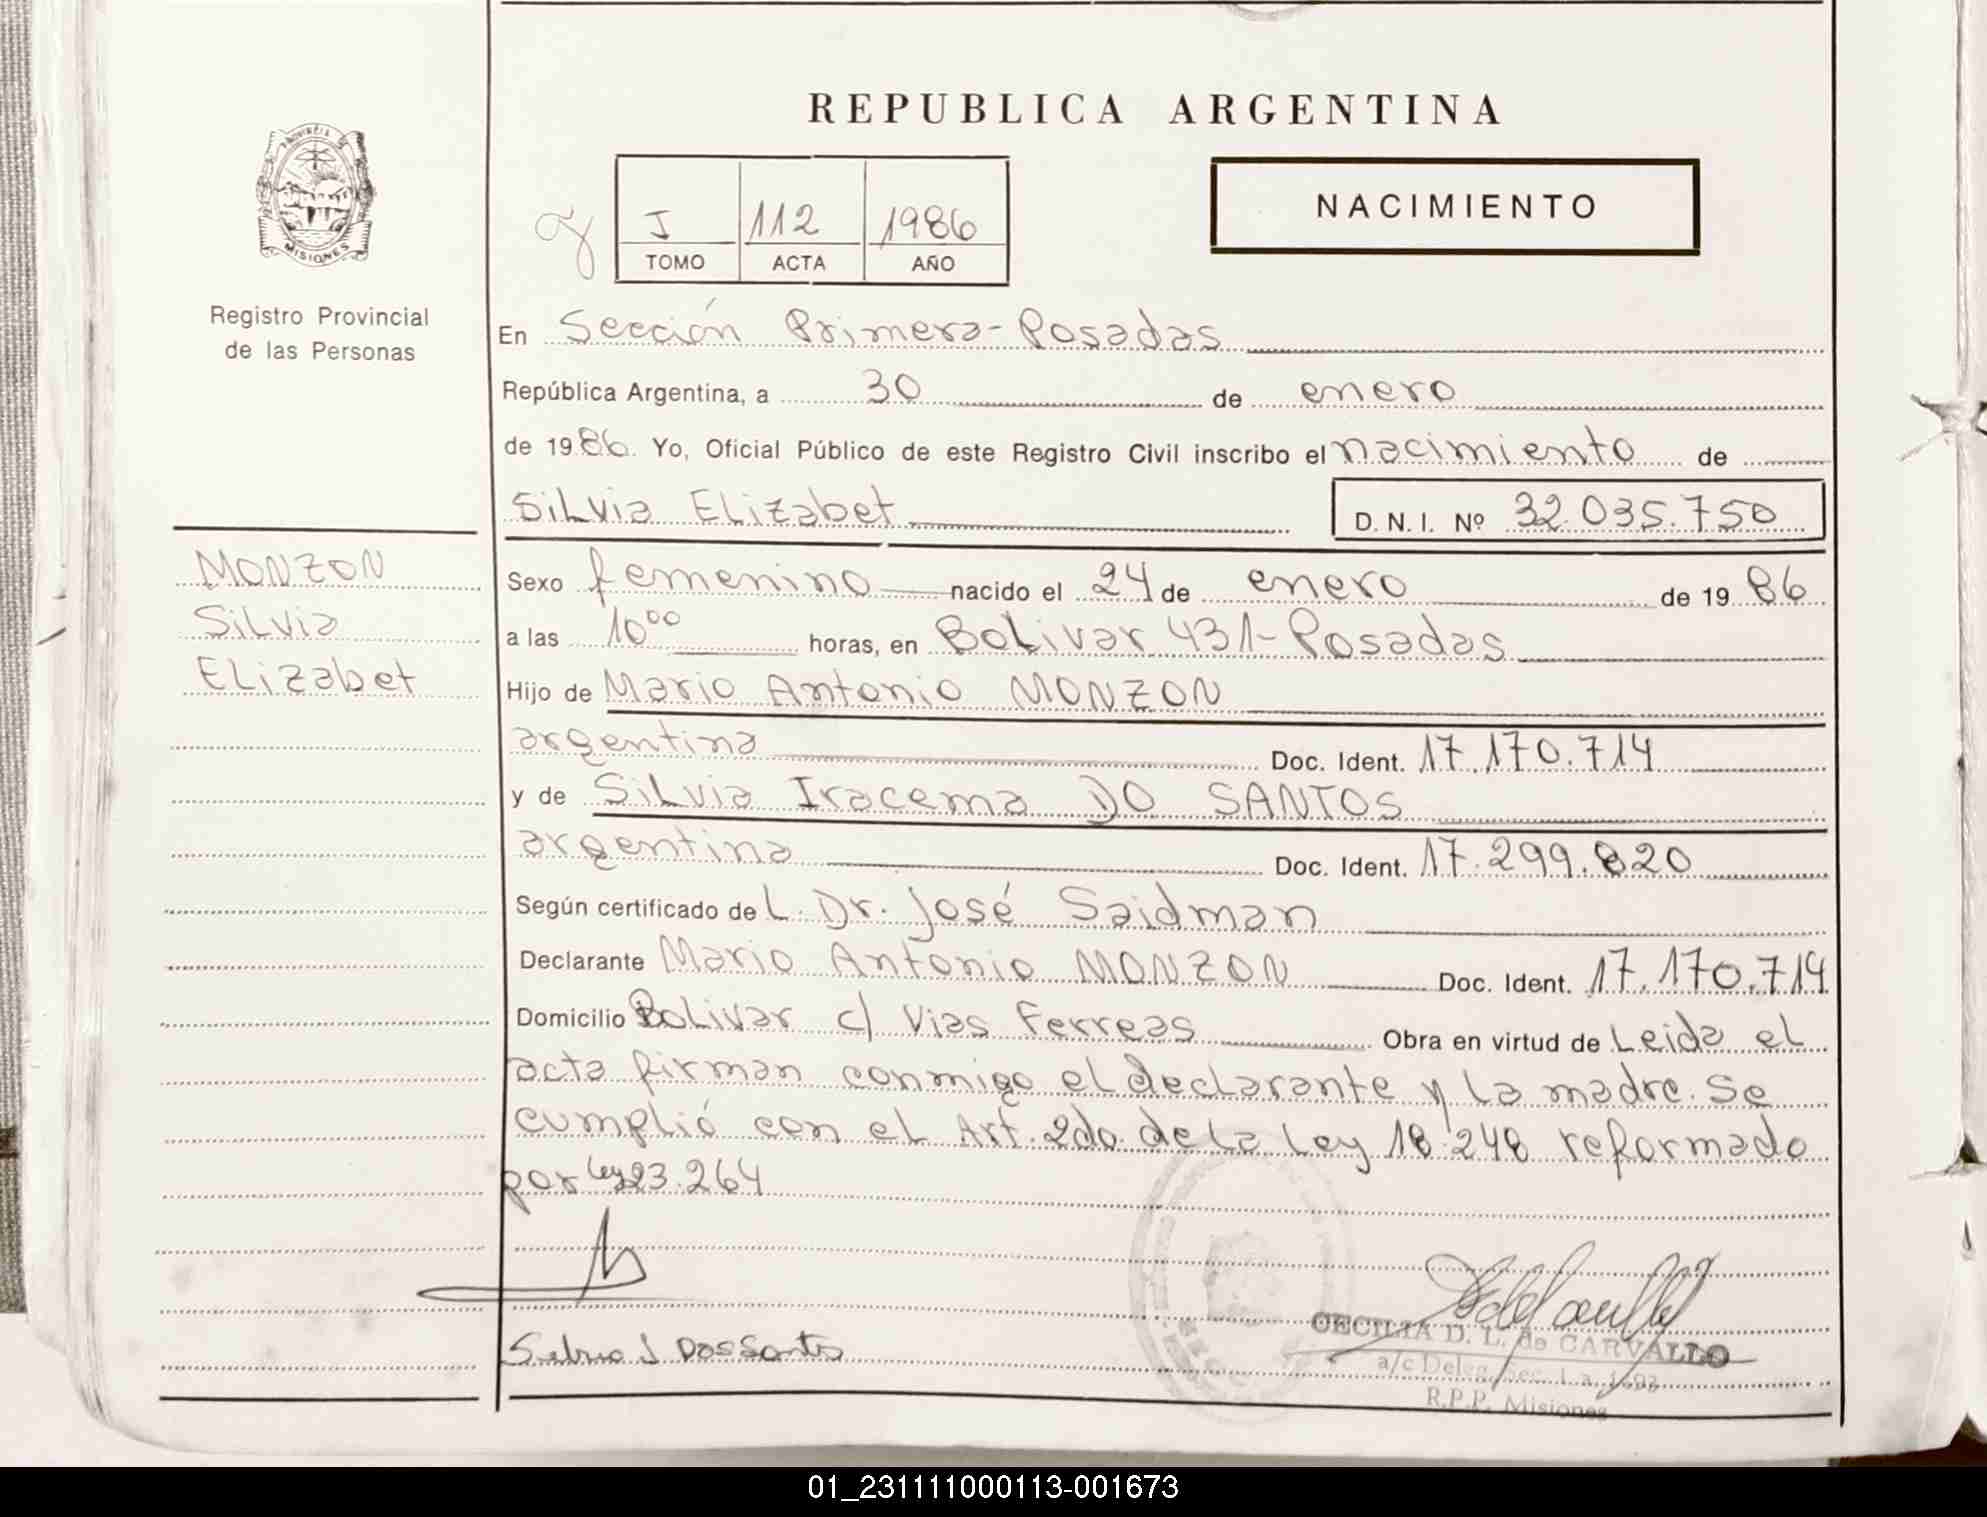 REPUBLICA ARGENTINA
PROVINCIA DE
MISIONES
Registro Provincial
de las Personas
I 112 1986
TOMO ACTA AÑO
NACIMIENTO
En Sección Primera-Posadas
República Argentina, a 30 de enero
de 1986. Yo, Oficial Público de este Registro Civil inscribo el nacimiento de
Silvia Elizabet D.N.I. Nº 32.035.750
MONZON
Silvia
Elizabet
Sexo femenino nacido el 24 de enero de 1986
a las 10⁰⁰ horas, en Bolivar 431-Posadas
Hijo de Mario Antonio MONZON
argentina Doc. Ident. 17.170.714
y de Silvia Iracema DO SANTOS
argentina Doc. Ident. 17.299.820
Según certificado de L. Dr. José Saidman
Declarante Mario Antonio MONZON Doc. Ident. 17.170.714
Domicilio Bolivar c/ Vias Ferreas Obra en virtud de Leida el
acta firman conmigo el declarante y la madre. Se
cumplió con el Art. 2do. de la Ley 18.248 reformado
por ley 23.264
CECILIA D. L. de CARVALLO
a/c Deleg. Sec. 1a.
R.P.P. Misiones
01_231111000113-001673